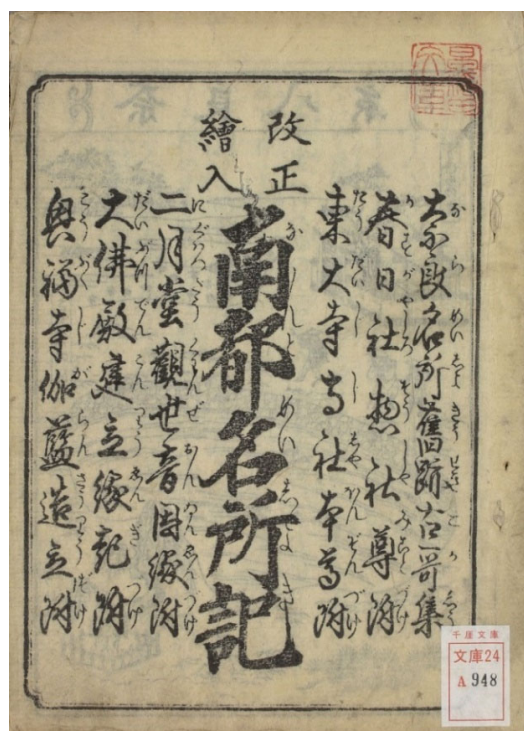 奈良名所舊跡古哥集
春日社惣社尊附
東大寺寺社本尊附
改正
繪入
南都名所記
二月堂觀世音因縁附
大佛殿建立縁記附
興福寺伽藍造立附
千厓文庫
文庫24
A 948